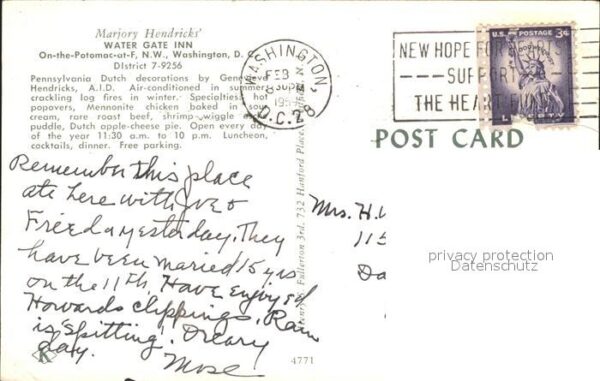 Marjory Hendricks'
WATER GATE INN
On-the-Potomac-at-F, N.W., Washington, D. C.
DIstrict 7-9256
Pennsylvania Dutch decorations by Genevieve
Hendricks, A.I.D. Air-conditioned in summer,
crackling log fires in winter. Specialties: hot
popovers, Mennonite chicken baked in sour
cream, rare roast beef, shrimp wiggle and
puddle, Dutch apple-cheese pie. Open every day
of the year 11:30 a.m. to 10 p.m. Luncheon,
cocktails, dinner. Free parking.
WASHINGTON,
FEB
8 30PM
D.C. 28
NEW HOPE FOR
SUPPORT
THE HEART FUND
U.S. POSTAGE 3¢
LIBERTY
POST CARD
Remember this place
ate here with Joe &
Frieda yesterday. They
have been maried 15 yrs
on the 11th. Have enjoyed
Howards clippings. Rain
is 'spitting'. Dreary
day.
Mose
Fullerton 3rd, 732 Hanford Place,
K
4771
Mrs. H.
115
Da
privacy protection
Datenschutz